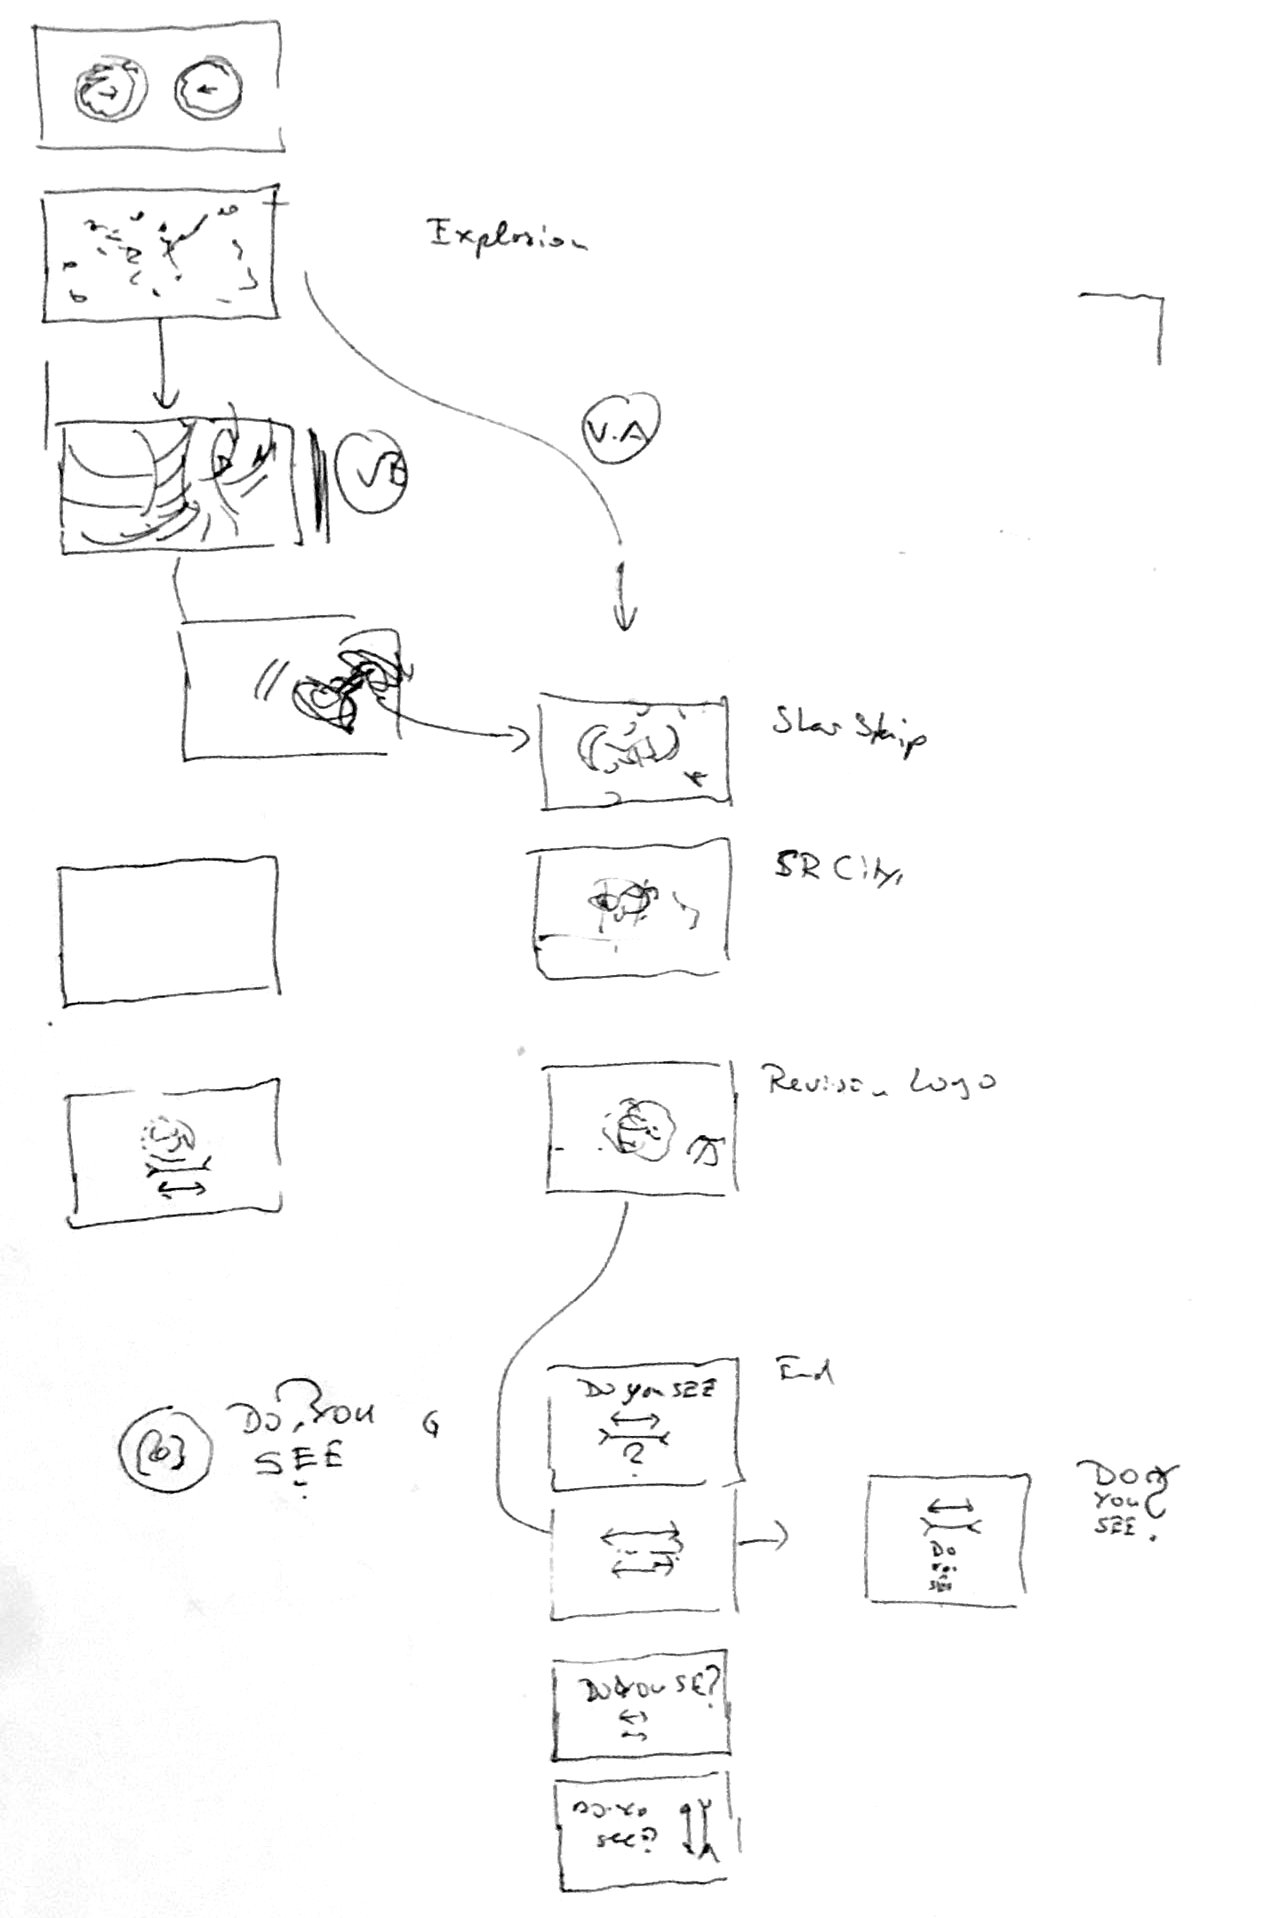 Explosion
V.A
VB
Star Ship
BR City
Revision Logo
End
Do you SEE
?
DO YOU
SEE
?
DO
YOU
SEE
?
DO
SEE
DO YOU SE?
see?